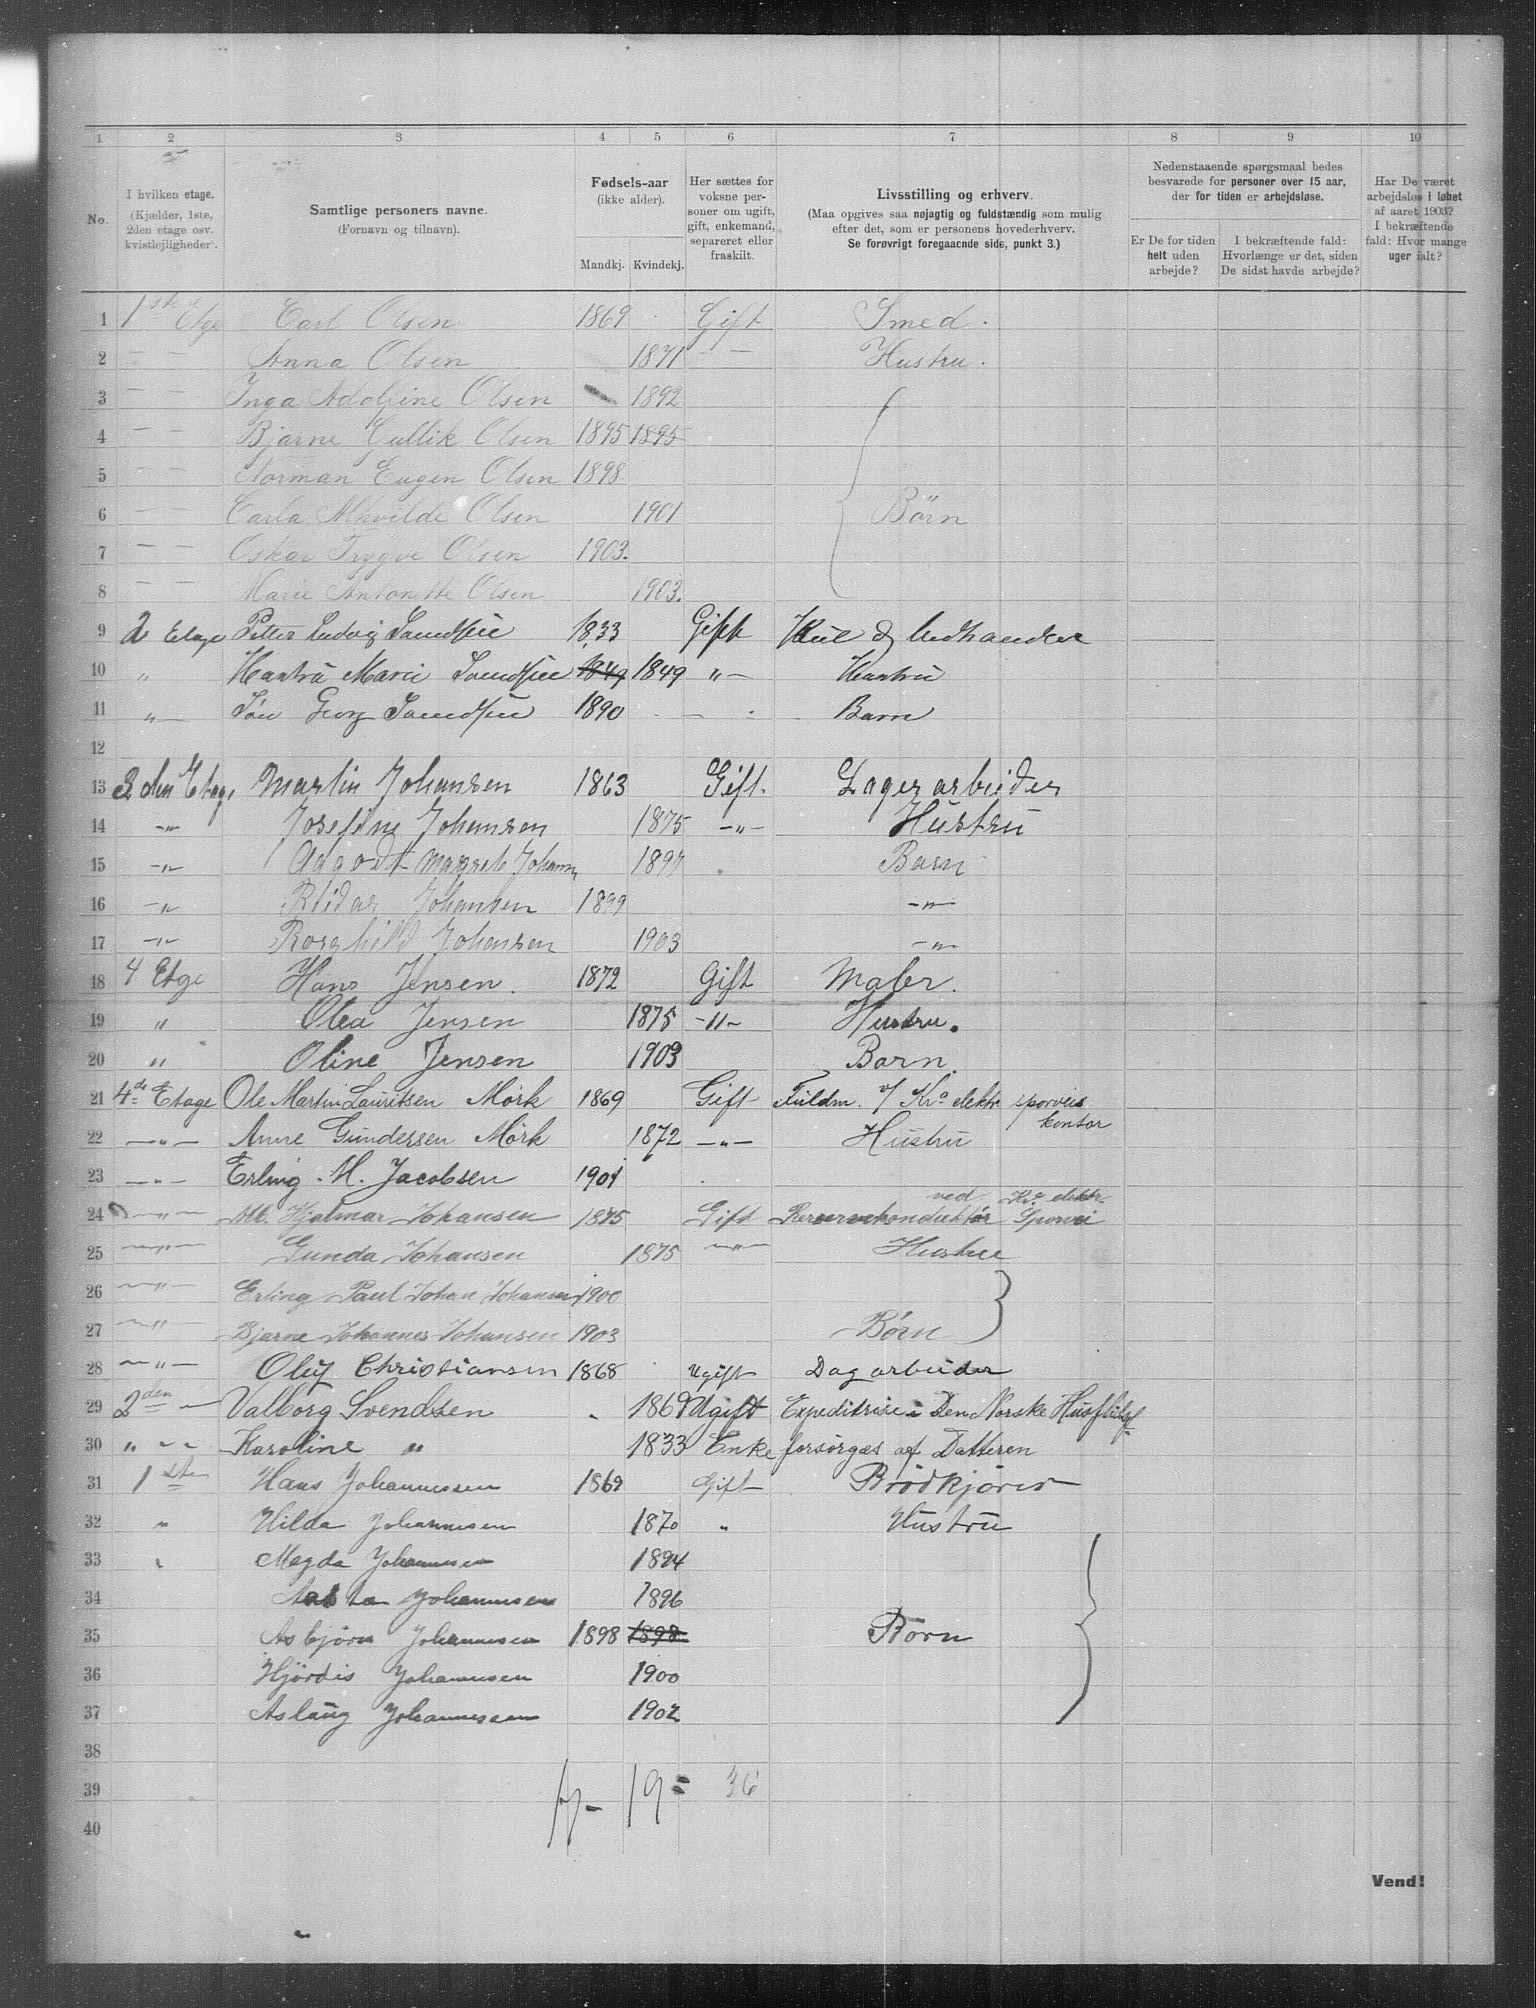 1 2 3 4 5 6 7 8 9 10
No.
I hvilken etage.
(Kjælder, 1ste,
2den etage osv.
kvistlejligheder).
Samtlige personers navne.
(Fornavn og tilnavn).
Fødsels-aar
(ikke alder).
Mandkj. Kvindekj.
Her sættes for
voksne per-
soner om ugift,
gift, enkemand,
separeret eller
fraskilt.
Livsstilling og erhverv.
(Maa opgives saa nøjagtig og fuldstændig som mulig
efter det, som er personens hovederhverv.
Se forøvrigt foregaaende side, punkt 3.)
Nedenstaaende spørgsmaal bedes
besvarede for personer over 15 aar,
der for tiden er arbejdsløse.
Er De for tiden
helt uden
arbejde?
I bekræftende fald:
Hvorlænge er det, siden
De sidst havde arbejde?
Har De været
arbejdsløs i løbet
af aaret 1903?
I bekræftende
fald: Hvor mange
uger ialt?
1 1ste Etge Carl Olsen 1869 Gift Smed.
2 — — Anna Olsen 1871 — — Hustru.
3 — — Inga Adolfine Olsen 1892
4 — — Bjarne Gullik Olsen 1895 1895
5 — — Norman Eugen Olsen 1898
6 — — Carla Alhvilde Olsen 1901 Børn
7 — — Oskar Trygve Olsen 1903.
8 — — Marie Antonette Olsen 1903.
9 2 Etage Petter Ludvig Svendsen 1833 Gift Kul og Vedhandler
10 " Hustru Marie Svendsen 1849 1849 " — Hustru
11 " — Søn Georg Svendsen 1890 — Barn
12
13 3 den Etag. Martin Johansen 1863 Gift. Lagerarbeider
14 —"— Josefine Johansen 1875 —"— Hustru
15 —"— Margrete Johansen 1897 Barn
16 —"— Reidar Johansen 1899 —"—
17 —"— Borghild Johansen 1903 —"—
18 4 Etge Hans Jensen. 1872 Gift Maler.
19 " Olea Jensen 1875 —"— Hustru.
20 " Oline Jensen 1903 Barn.
21 4de Etage Ole Martin Lauritsen Mörk 1869 Gift Fuldm. v/ Kra elektr sporveis
kontor
22 —"— Anne Gundersen Mörk 1872 —"— Hustru
23 —"— Erling M. Jacobsen 1901
24 —"— M. Hjalmar Johansen 1875 Gift Reservekonduktør ved Kra elektr. Sporvei
25 —"— Gunda Johansen 1875 —"— Hustru
26 —"— Erling Paul Johan Johansen 1900
27 —" Bjarne Johannes Johansen 1903 Børn
28 —"— Oluf Christiansen 1868 Ugift Dagarbeider
29 2den — Valborg Svendsen 1869 Ugift Expeditrise i Den Norske Husflidsf.
30 " — — Karoline " 1833 Enke forsörges af Datteren
31 1ste Hans Johannessen 1869 Gift Brödkjörer
32 " Hilda Johannesen 1870 " Hustru
33 " Magda Johannesen 1894
34 Asta Johannesen 1896
35 Asbjörn Johannesen 1898 1898 Börn
36 Hjördis Johannesen 1900
37 Aslaug Johannesen 1902
38
39 17 — 19 = 36
40
Vend!